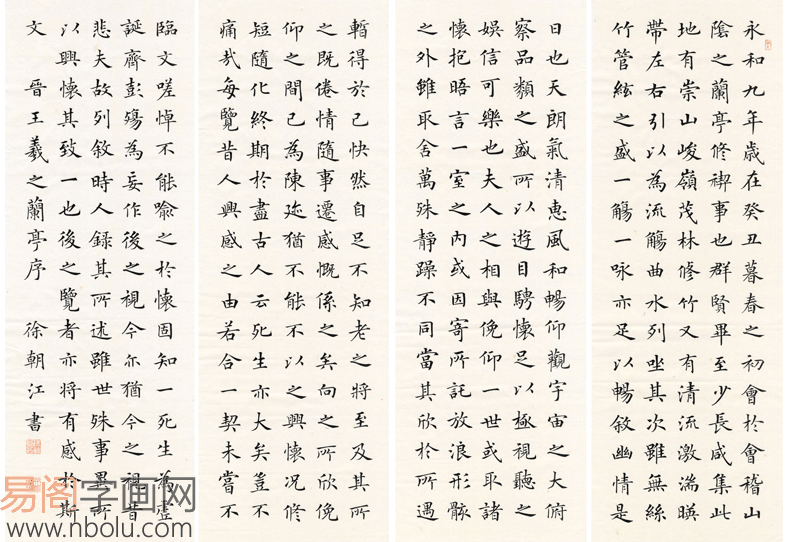 永和九年歲在癸丑暮春之初會於會稽山
陰之蘭亭修禊事也群賢畢至少長咸集此
地有崇山峻嶺茂林修竹又有清流激湍暎
帶左右引以為流觴曲水列坐其次雖無絲
竹管絃之盛一觴一咏亦足以暢敘幽情是
日也天朗氣清惠風和暢仰觀宇宙之大俯
察品類之盛所以遊目騁懷足以極視聽之
娛信可樂也夫人之相與俛仰一世或取諸
懷抱晤言一室之內或因寄所託放浪形骸
之外雖取舍萬殊靜躁不同當其欣於所遇
暫得於己快然自足不知老之將至及其所
之既倦情隨事遷感慨係之矣向之所欣俛
仰之間已為陳迹猶不能不以之興懷況修
短隨化終期於盡古人云死生亦大矣豈不
痛哉每覽昔人興感之由若合一契未嘗不
臨文嗟悼不能喻之於懷固知一死生為虛
誕齊彭殤為妄作後之視今亦猶今之視昔
悲夫故列敘時人錄其所述雖世殊事異所
以興懷其致一也後之覽者亦將有感於斯
文 晉王羲之蘭亭序 徐朝江書
易阁字画网
www.nbolu.com